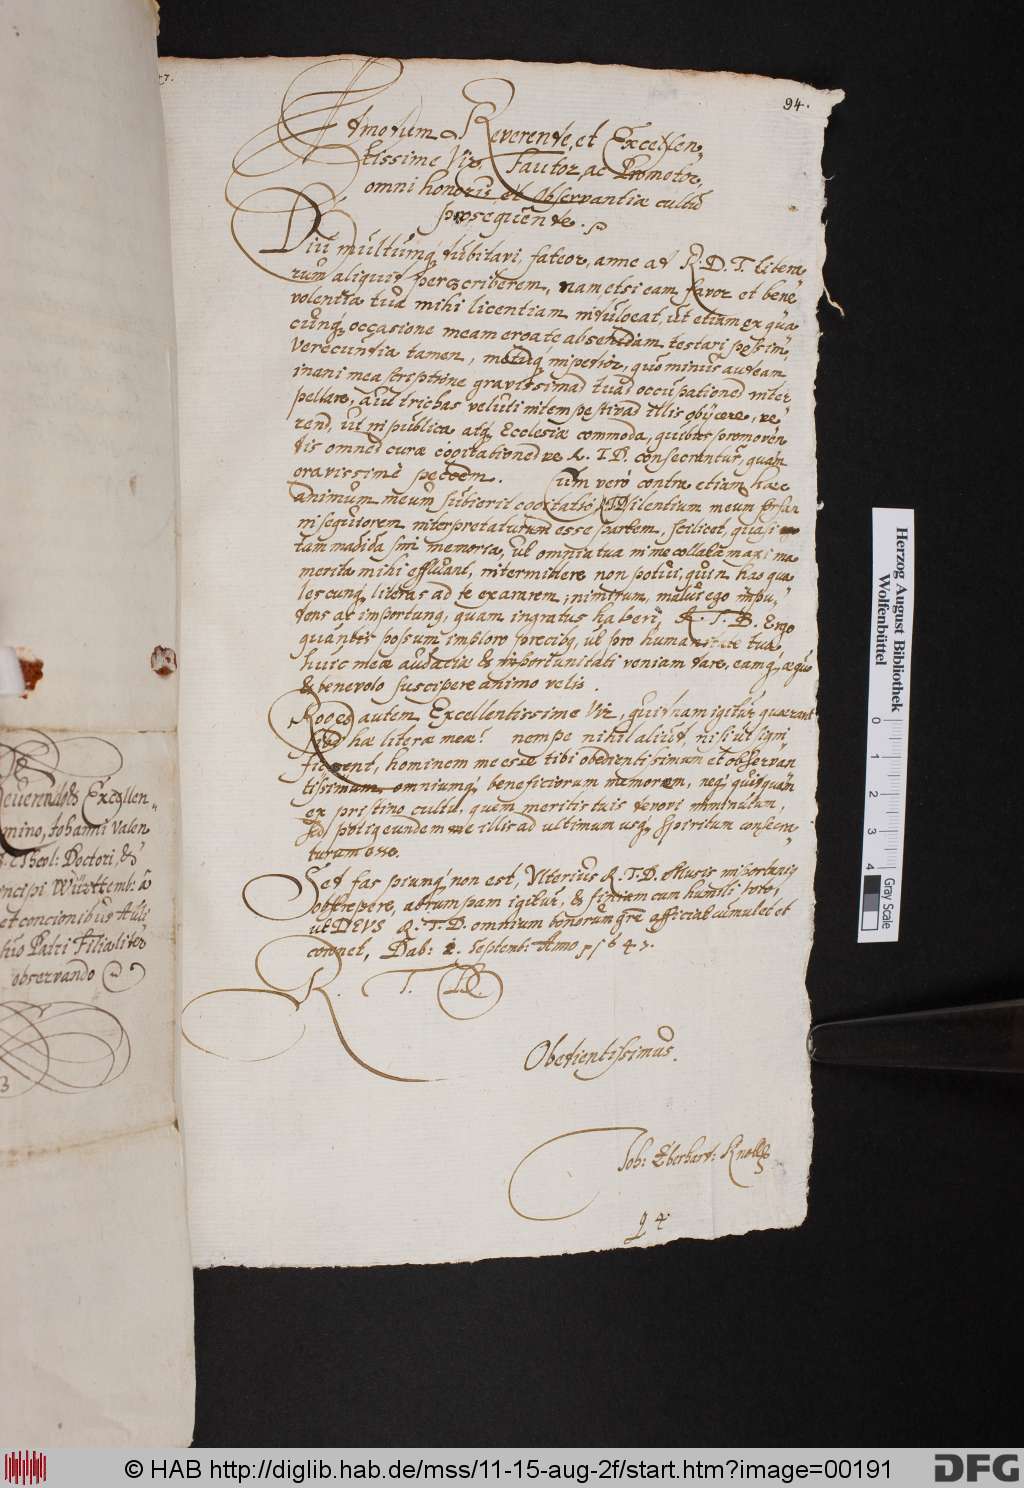 94.
Admodum Reverende, et Excellen„
tissime Vir, Fautor, ac Promotor,
omni honoris et observantiæ cultu
prosequende.
Diu multumq́ dubitavi, fateor, anne ad R. D. T. litera„
rum aliquid perscriberem, nam, etsi eam favor et bene„
volentia tua mihi licentiam indulgeat, ut etiam ex qua„
cunq́ occasione meam erga te observantiam testari possim,
verecundia tamen, metusq́ impedior, quo minus audeam
inani mea scriptione gravissimas tuas occupationes inter„
pellare, aut trichas veluti intempestivas illis obijcere, ve„
rens, ut ni publica atq́ Ecclesiæ commoda, quibus promoven„
dis omnes curæ cogitationesve R. T. D. consecrantur, quam
gravissimè peccem. Cum verò contra etiam hæc
animum meum subierit cogitatio, R.T.D. silentium meum forsan
in sequiorem interpretaturam esse partem, scilicet, quasi
tam madida sim memoria, ut omnia tua in me collata maxima
merita mihi effluant, intermittere non potui, quin has qua„
lescunq́ literas ad te exararem, nimirum, malui ego impu„
dens ac importunq, quam ingratus haberi, R. T. D. Ergo
quantis possum imploro precibq, ut pro humanitate tua,
huic meæ audaciæ & importunitati veniam dare, eamq́, æquo
& benevolo suscipere animo velis.
Rogas autem Excellentissime Vir, quidnam igitur quærant
hæ literæ meæ? nempe nihil aliud, nisi ut signi„
ficent, hominem me esse tibi obedientissimum et observan„
tissimum, omniumq́ beneficiorum memorem, neq́ quidquam
ex pristino cultu, quem meritis tuis debeo imminutum,
sed potiq eundem me illis ad ultimum usq́ spiritum consecra„
turum esse.
Sed fas piumq́ non est, Ulterius R. T. D. Musis importunius
obstrepere, abrumpam igitur, & finiam cum humili voto,
ut DEUS R. T. D. omnium bonorum gñe affatim cumulet et
coronet, Dab: 1. Septemb: Anno 1647.
R. T. D.
Obedientissimus.
Joh: Eberhard: Knoll
94
Reverendo & Excellen„
mino, Johanni Valen
Theol: Doctori, &
ncipi Würtemb: à
et concionibus Auli
Patri Filialiter
observando
Herzog August Bibliothek
Wolfenbüttel
0 1 2 3 4
Gray Scale
© HAB http://diglib.hab.de/mss/11-15-aug-2f/start.htm?image=00191
DFG